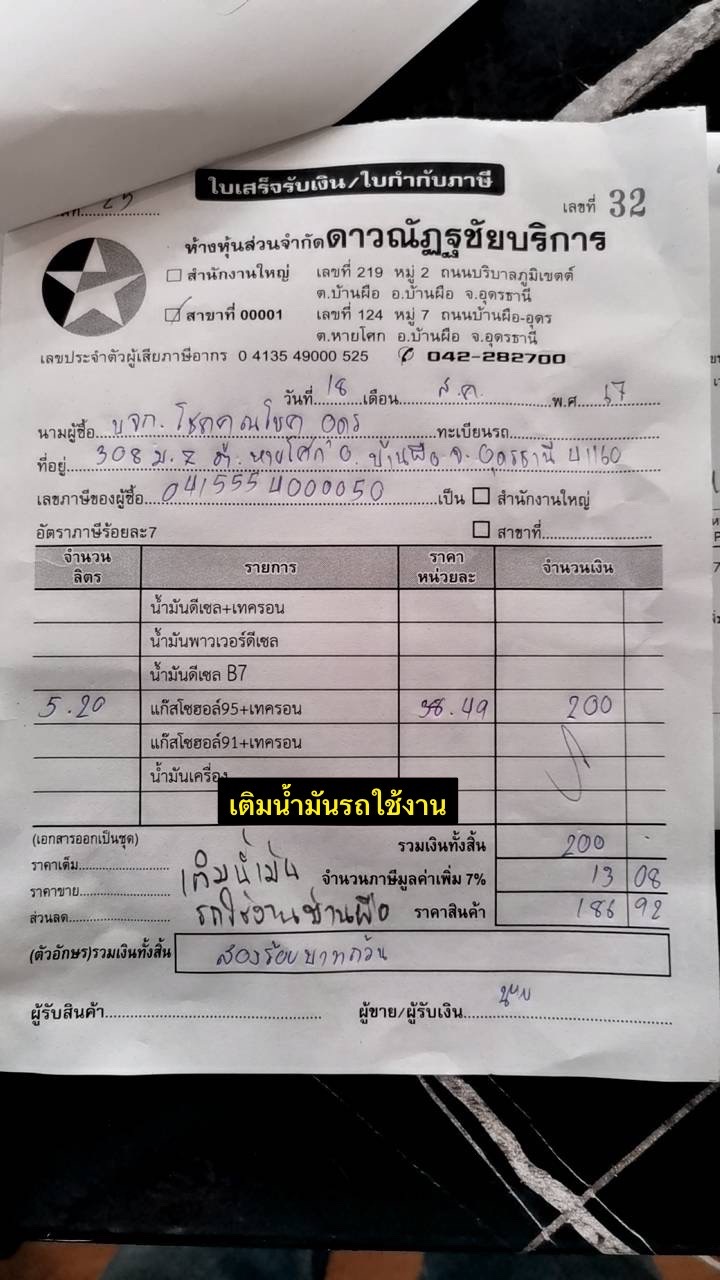 ใบเสร็จรับเงิน/ใบกำกับภาษี
เลขที่ 32
ห้างหุ้นส่วนจำกัดดาวณัฏฐชัยบริการ
สำนักงานใหญ่ เลขที่ 219 หมู่ 2 ถนนบริบาลภูมิเขตต์
ต.บ้านผือ อ.บ้านผือ จ.อุดรธานี
สาขาที่ 00001 เลขที่ 124 หมู่ 7 ถนนบ้านผือ-อุดร
ต.หายโศก อ.บ้านผือ จ.อุดรธานี
เลขประจำตัวผู้เสียภาษีอากร 0 4135 49000 525 042-282700
วันที่ 18 เดือน ส.ค. พ.ศ. 67
นามผู้ซื้อ บจก. โชคคูณโชค อุดร ทะเบียนรถ
ที่อยู่ 308 ม. 2 ต. หายโศก อ. บ้านผือ จ. อุดรธานี 41160
เลขภาษีของผู้ซื้อ 0415554000050 เป็น สำนักงานใหญ่
อัตราภาษีร้อยละ7 สาขาที่
จำนวนลิตร รายการ ราคาหน่วยละ จำนวนเงิน
น้ำมันดีเซล+เทครอน
น้ำมันพาวเวอร์ดีเซล
น้ำมันดีเซล B7
5.20 แก๊สโซฮอล์95+เทครอน 38.49 200
แก๊สโซฮอล์91+เทครอน
น้ำมันเครื่อง
เติมน้ำมันรถใช้งาน
(เอกสารออกเป็นชุด) รวมเงินทั้งสิ้น 200 -
ราคาเต็ม เติมน้ำมัน จำนวนภาษีมูลค่าเพิ่ม 7% 13 08
ราคาขาย
ส่วนลด รถใช้งานบ้านผือ ราคาสินค้า 186 92
(ตัวอักษร)รวมเงินทั้งสิ้น สองร้อยบาทถ้วน
ผู้รับสินค้า ผู้ขาย/ผู้รับเงิน